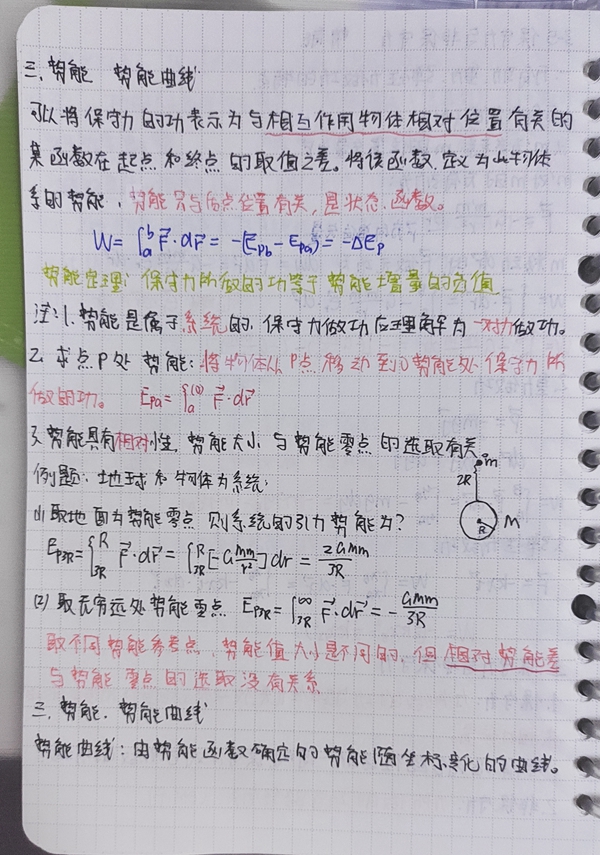 三、势能 势能曲线
可以将保守力的功表示为与相互作用物体相对位置有关的
某函数在起点和终点的取值之差。将该函数定义为此物体
系的势能，势能只与始点位置有关，是状态函数。
W=∫_a^b F⃗·dr⃗ = -(E_Pb - E_Pa) = -ΔE_P
势能定理：保守力所做的功等于势能增量的负值
注：1、势能是属于系统的，保守力做功应理解为一对力做功。
2、求点P处势能：将物体从P点移动到0势能处保守力所
做的功。 E_Pa=∫_a^(0) F⃗·dr⃗
3、势能具有相对性，势能大小与势能零点的选取有关
例题：地球和物体为系统：
m
2R
R
M
(1)取地面为势能零点，则系统的引力势能为？
E_P3R=∫_3R^R F⃗·dr⃗ = ∫_3R^R [-G Mm/r²]dr = 2GMm/3R
(2) 取无穷远处势能零点 E_P3R=∫_3R^∞ F⃗·dr⃗ = -GMm/3R
取不同势能参考点，势能值大小是不同的，但相对势能差
与势能零点的选取没有关系
三、势能、势能曲线
势能曲线：由势能函数确定的势能随坐标变化的曲线。